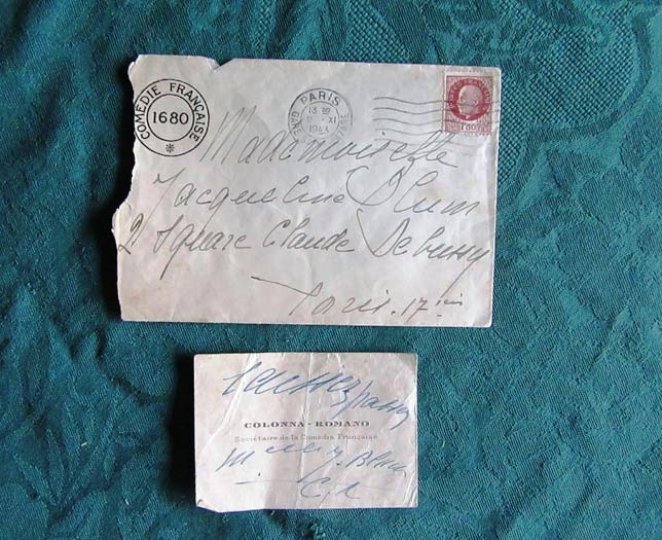 COMÉDIE FRANÇAISE
1680
PARIS
XI
1943
1F50
Mademoiselle
Jacqueline Blum
2 Square Claude Debussy
Paris. 17
laissez passer
COLONNA - ROMANO
Sociétaire de la Comédie Française
Blum